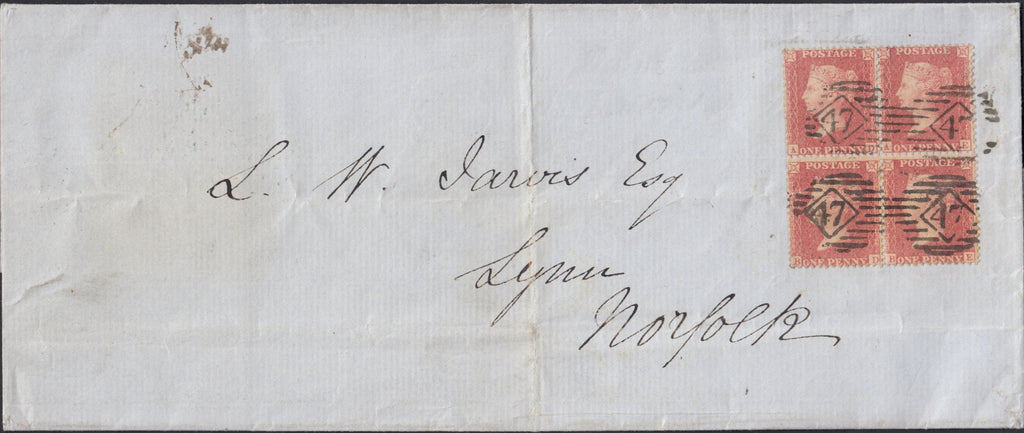 POSTAGE POSTAGE
47 47
A ONE PENNY D A ONE PENNY E
POSTAGE POSTAGE
47 47
B ONE PENNY D B ONE PENNY E
L. W. Jarvis Esq
Lynn
Norfolk